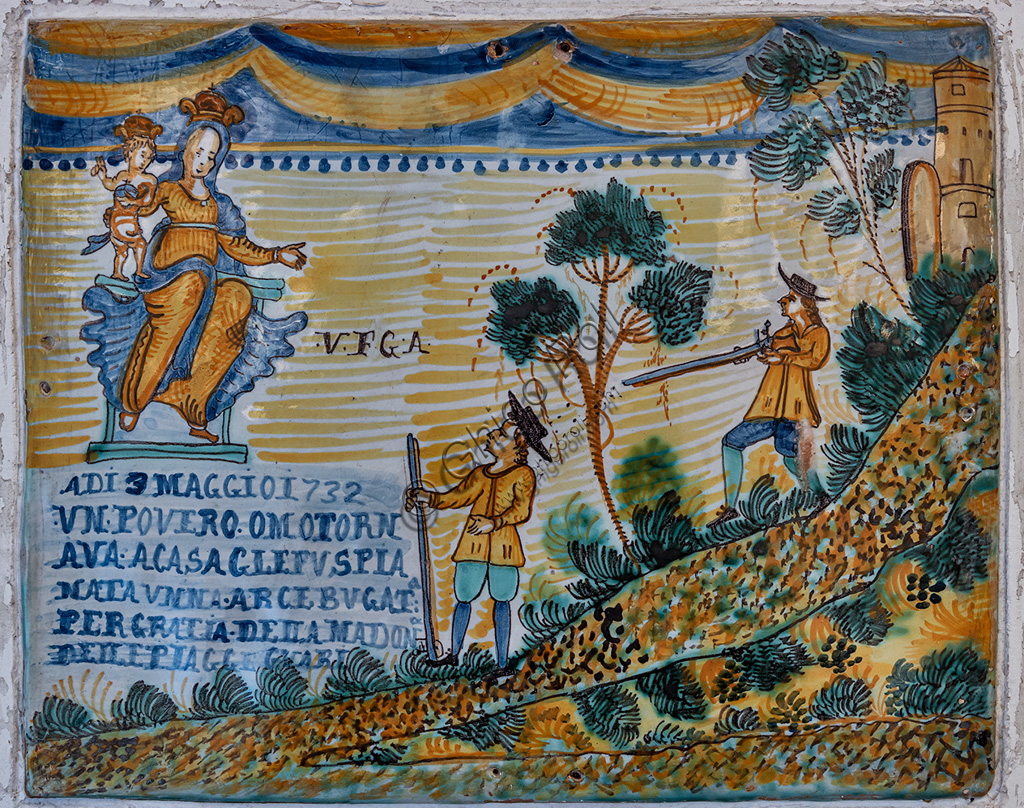 V.F.G.A
ADI 3 MAGGIO 1732
VN. POVERO. OMO TORN
AVA: A CASA GLE FV SPIA
NATA VNNA: ARCEBUGAT:A
PER GRATIA DELLA MADON:A
DELLE PIAGGE GUARI